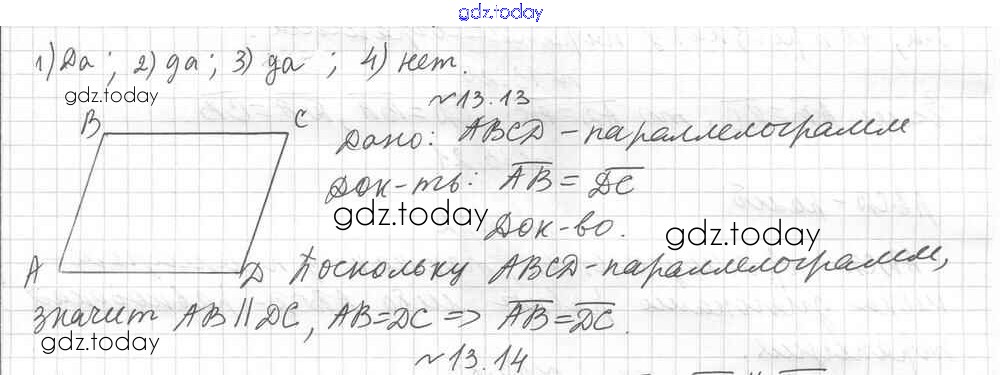 gdz.today
1) Да; 2) да; 3) да; 4) нет.
gdz.today
№13.13
B C
Дано: ABCD - параллелограмм
Док-ть: A͞B͞ = D͞C͞
gdz.today
Док-во.
gdz.today
A D Поскольку ABCD - параллелограмм,
значит AB || DC, AB = DC => A͞B͞ = D͞C͞.
gdz.today
№13.14